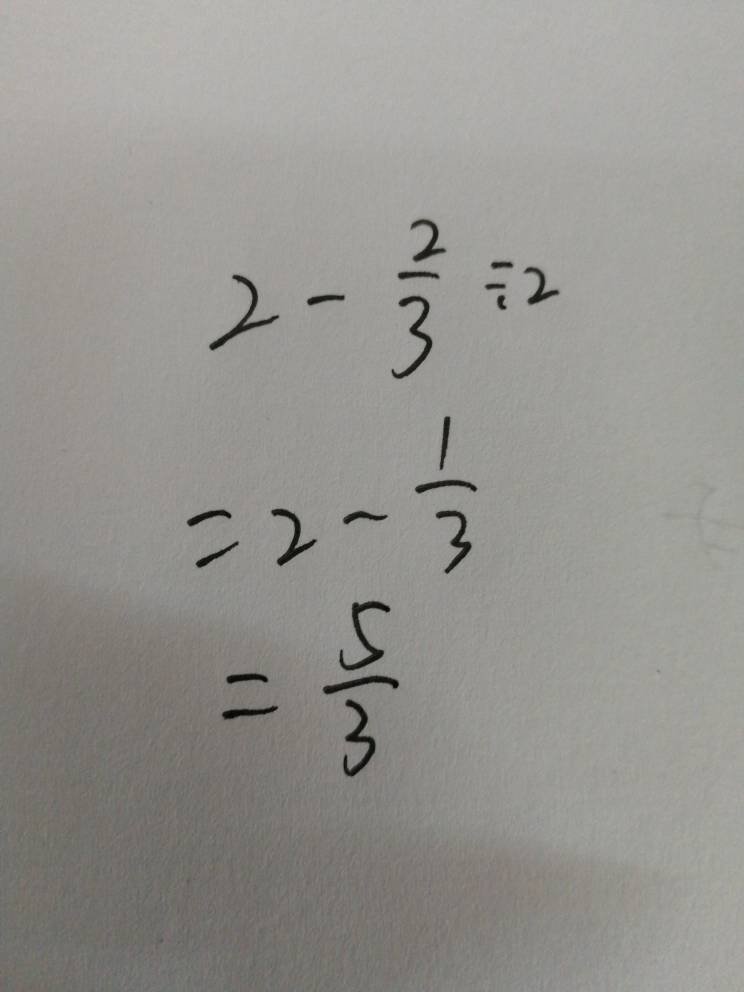 2 - 2/3 ÷ 2
= 2 - 1/3
= 5/3